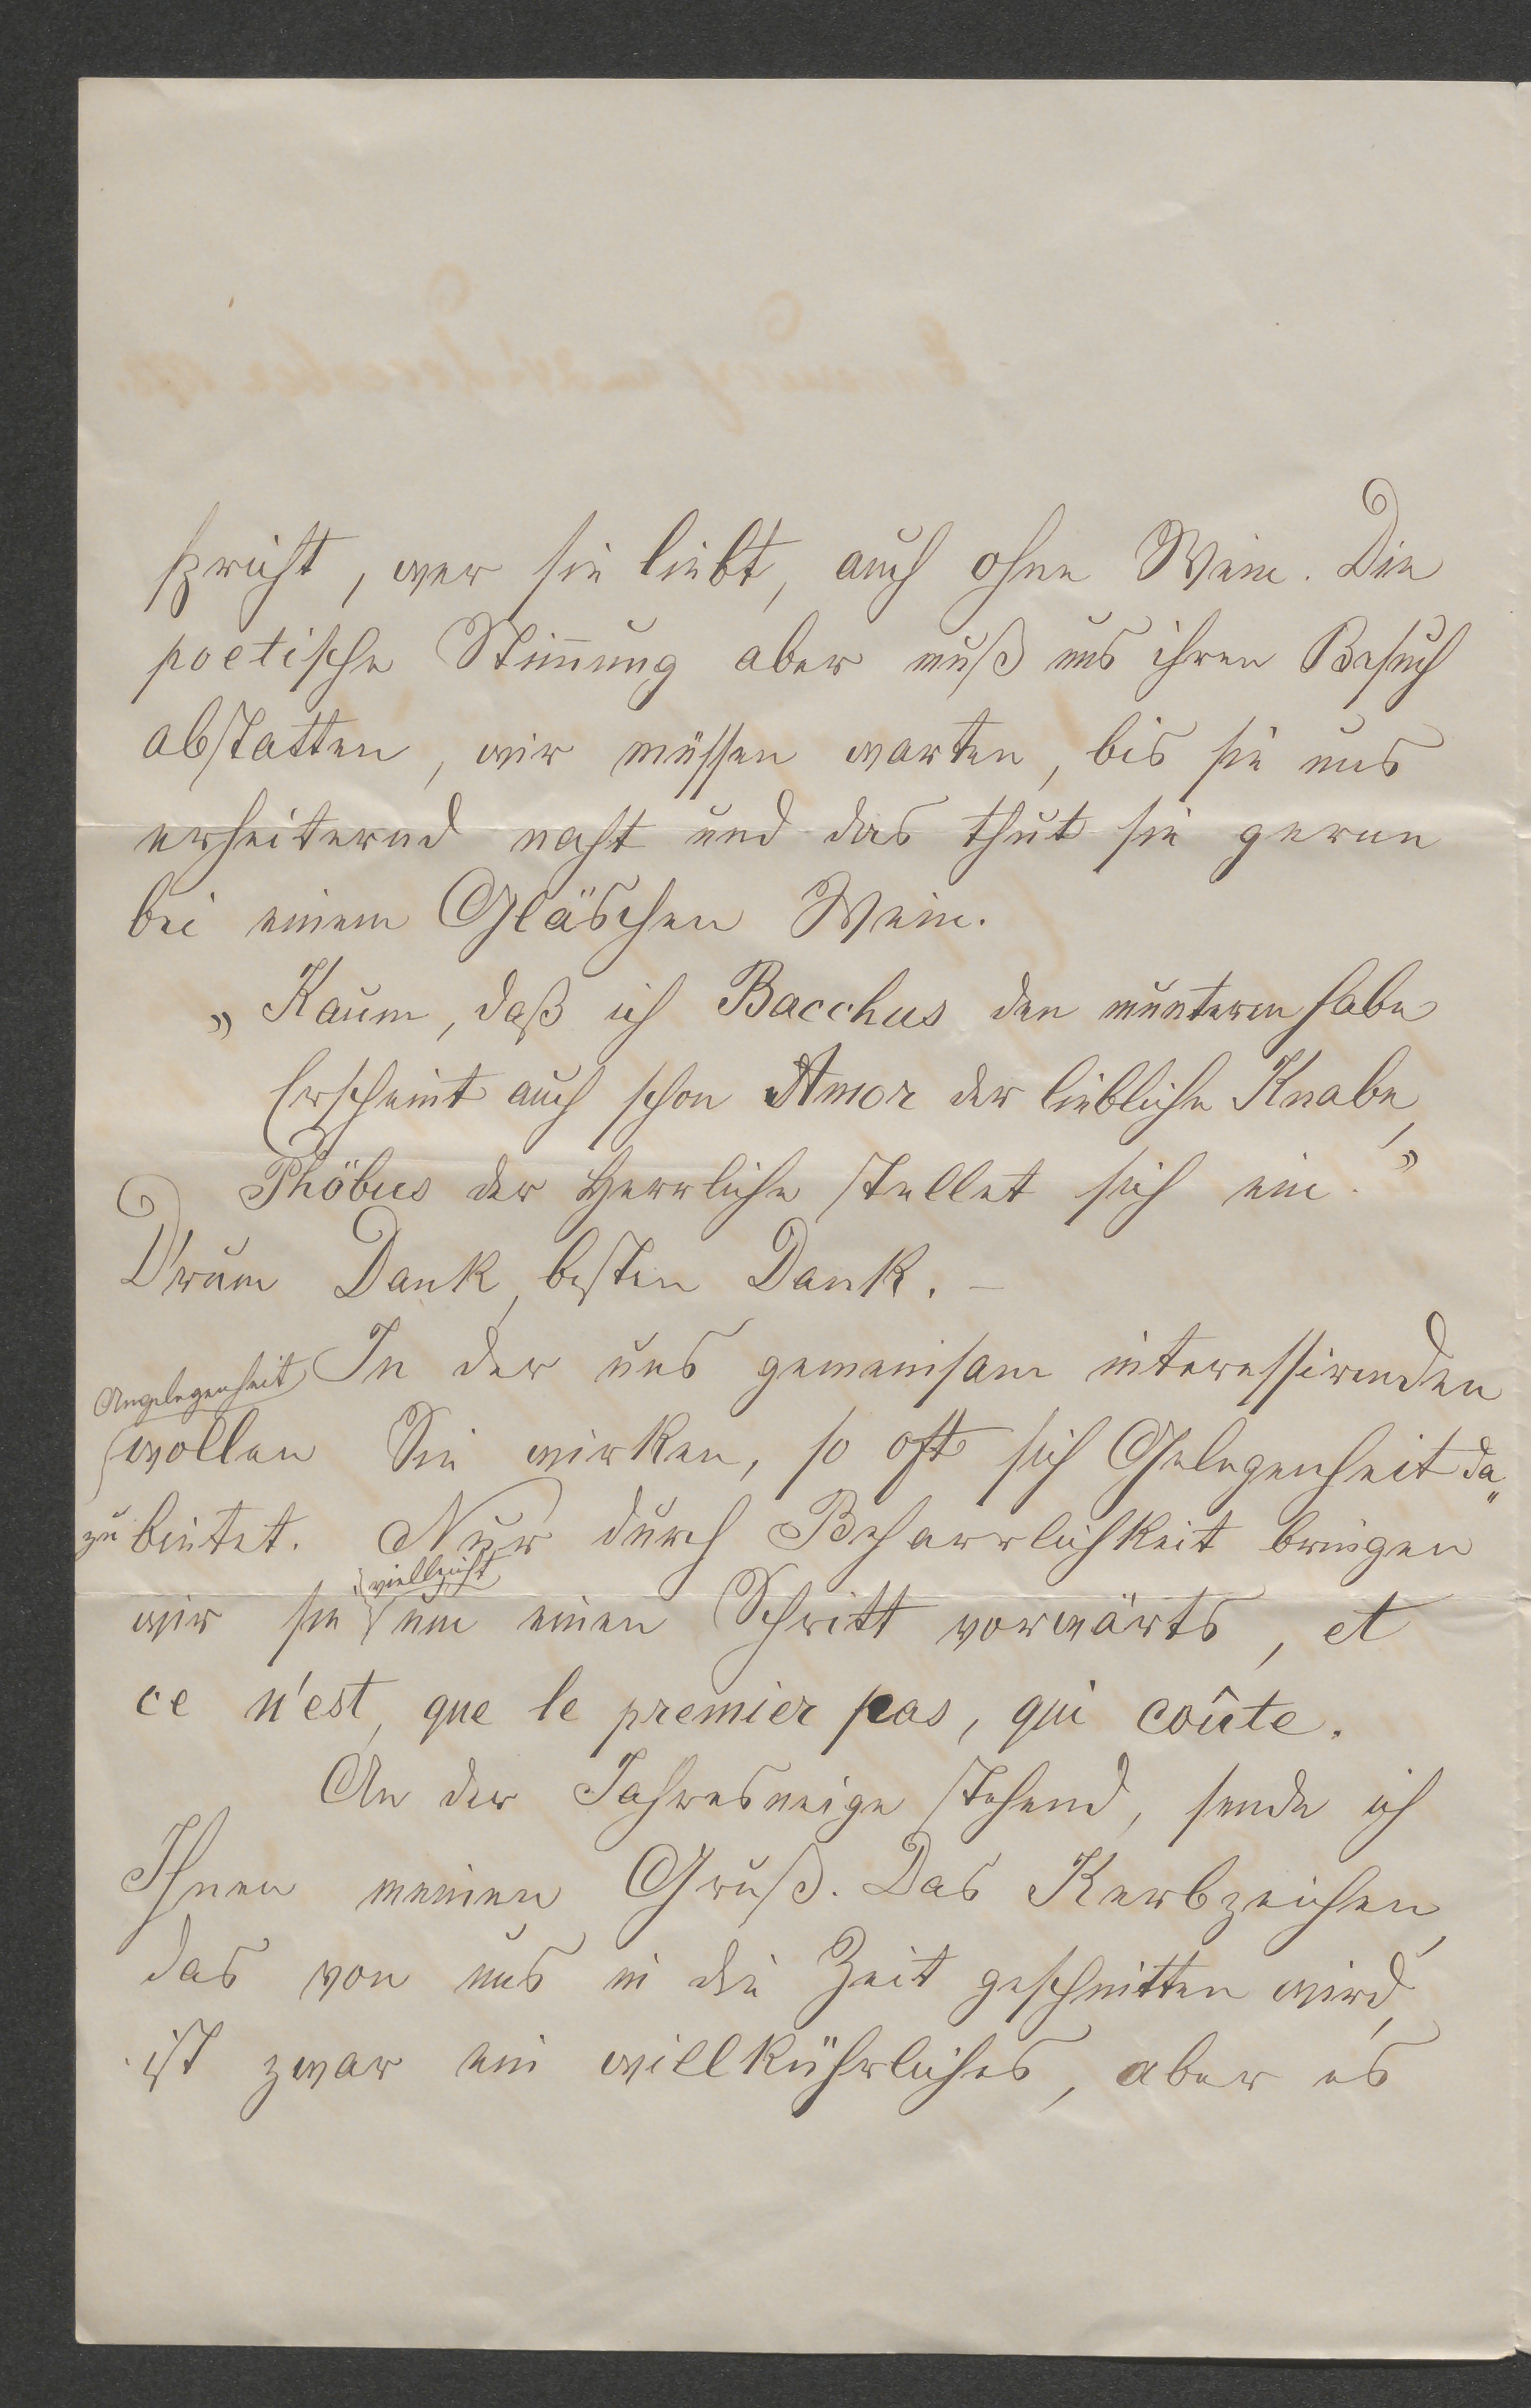 spricht, wer sie liebt, auch ohne Wein. Die
poetische Stim̅ung aber muß uns ihren Besuch
abstatten, wir müssen warten, bis sie uns
erheiternd naht und das thut sie gerne
bei einem Gläschen Wein.
„Kaum, daß ich Bacchus den munteren habe
Erscheint auch schon Amor der liebliche Knabe,
Phöbus der Herrliche stellet sich ein.“
D'rum Dank, besten Dank. –
In der uns gemeinsam interessirenden
Angelegenheit
wollen Sie wirken, so oft sich Gelegenheit da„
zu bietet. Nur durch Beharrlichkeit bringen
vielleicht
wir sie um einen Schritt vorwärts, et
ce n'est, que le premier pas, qui coûte.
An der Jahresneige stehend, sende ich
Ihnen meinen Gruß. Das Kerbzeichen,
das von uns in die Zeit geschnitten wird,
ist zwar ein willkührliches, aber es